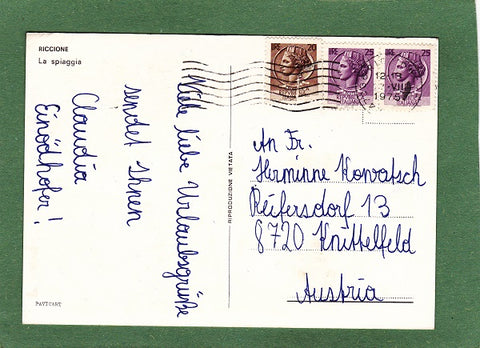 RICCIONE
La spiaggia
Viele liebe Urlaubsgrüße
sendet Ihnen
Claudia
Einödhofer!
RIPRODUZIONE VIETATA
20
25
25
12-18
VII
1975
An Fr.
Herminne Kowatsch
Reifersdorf 13
8720 Knittelfeld
Austria